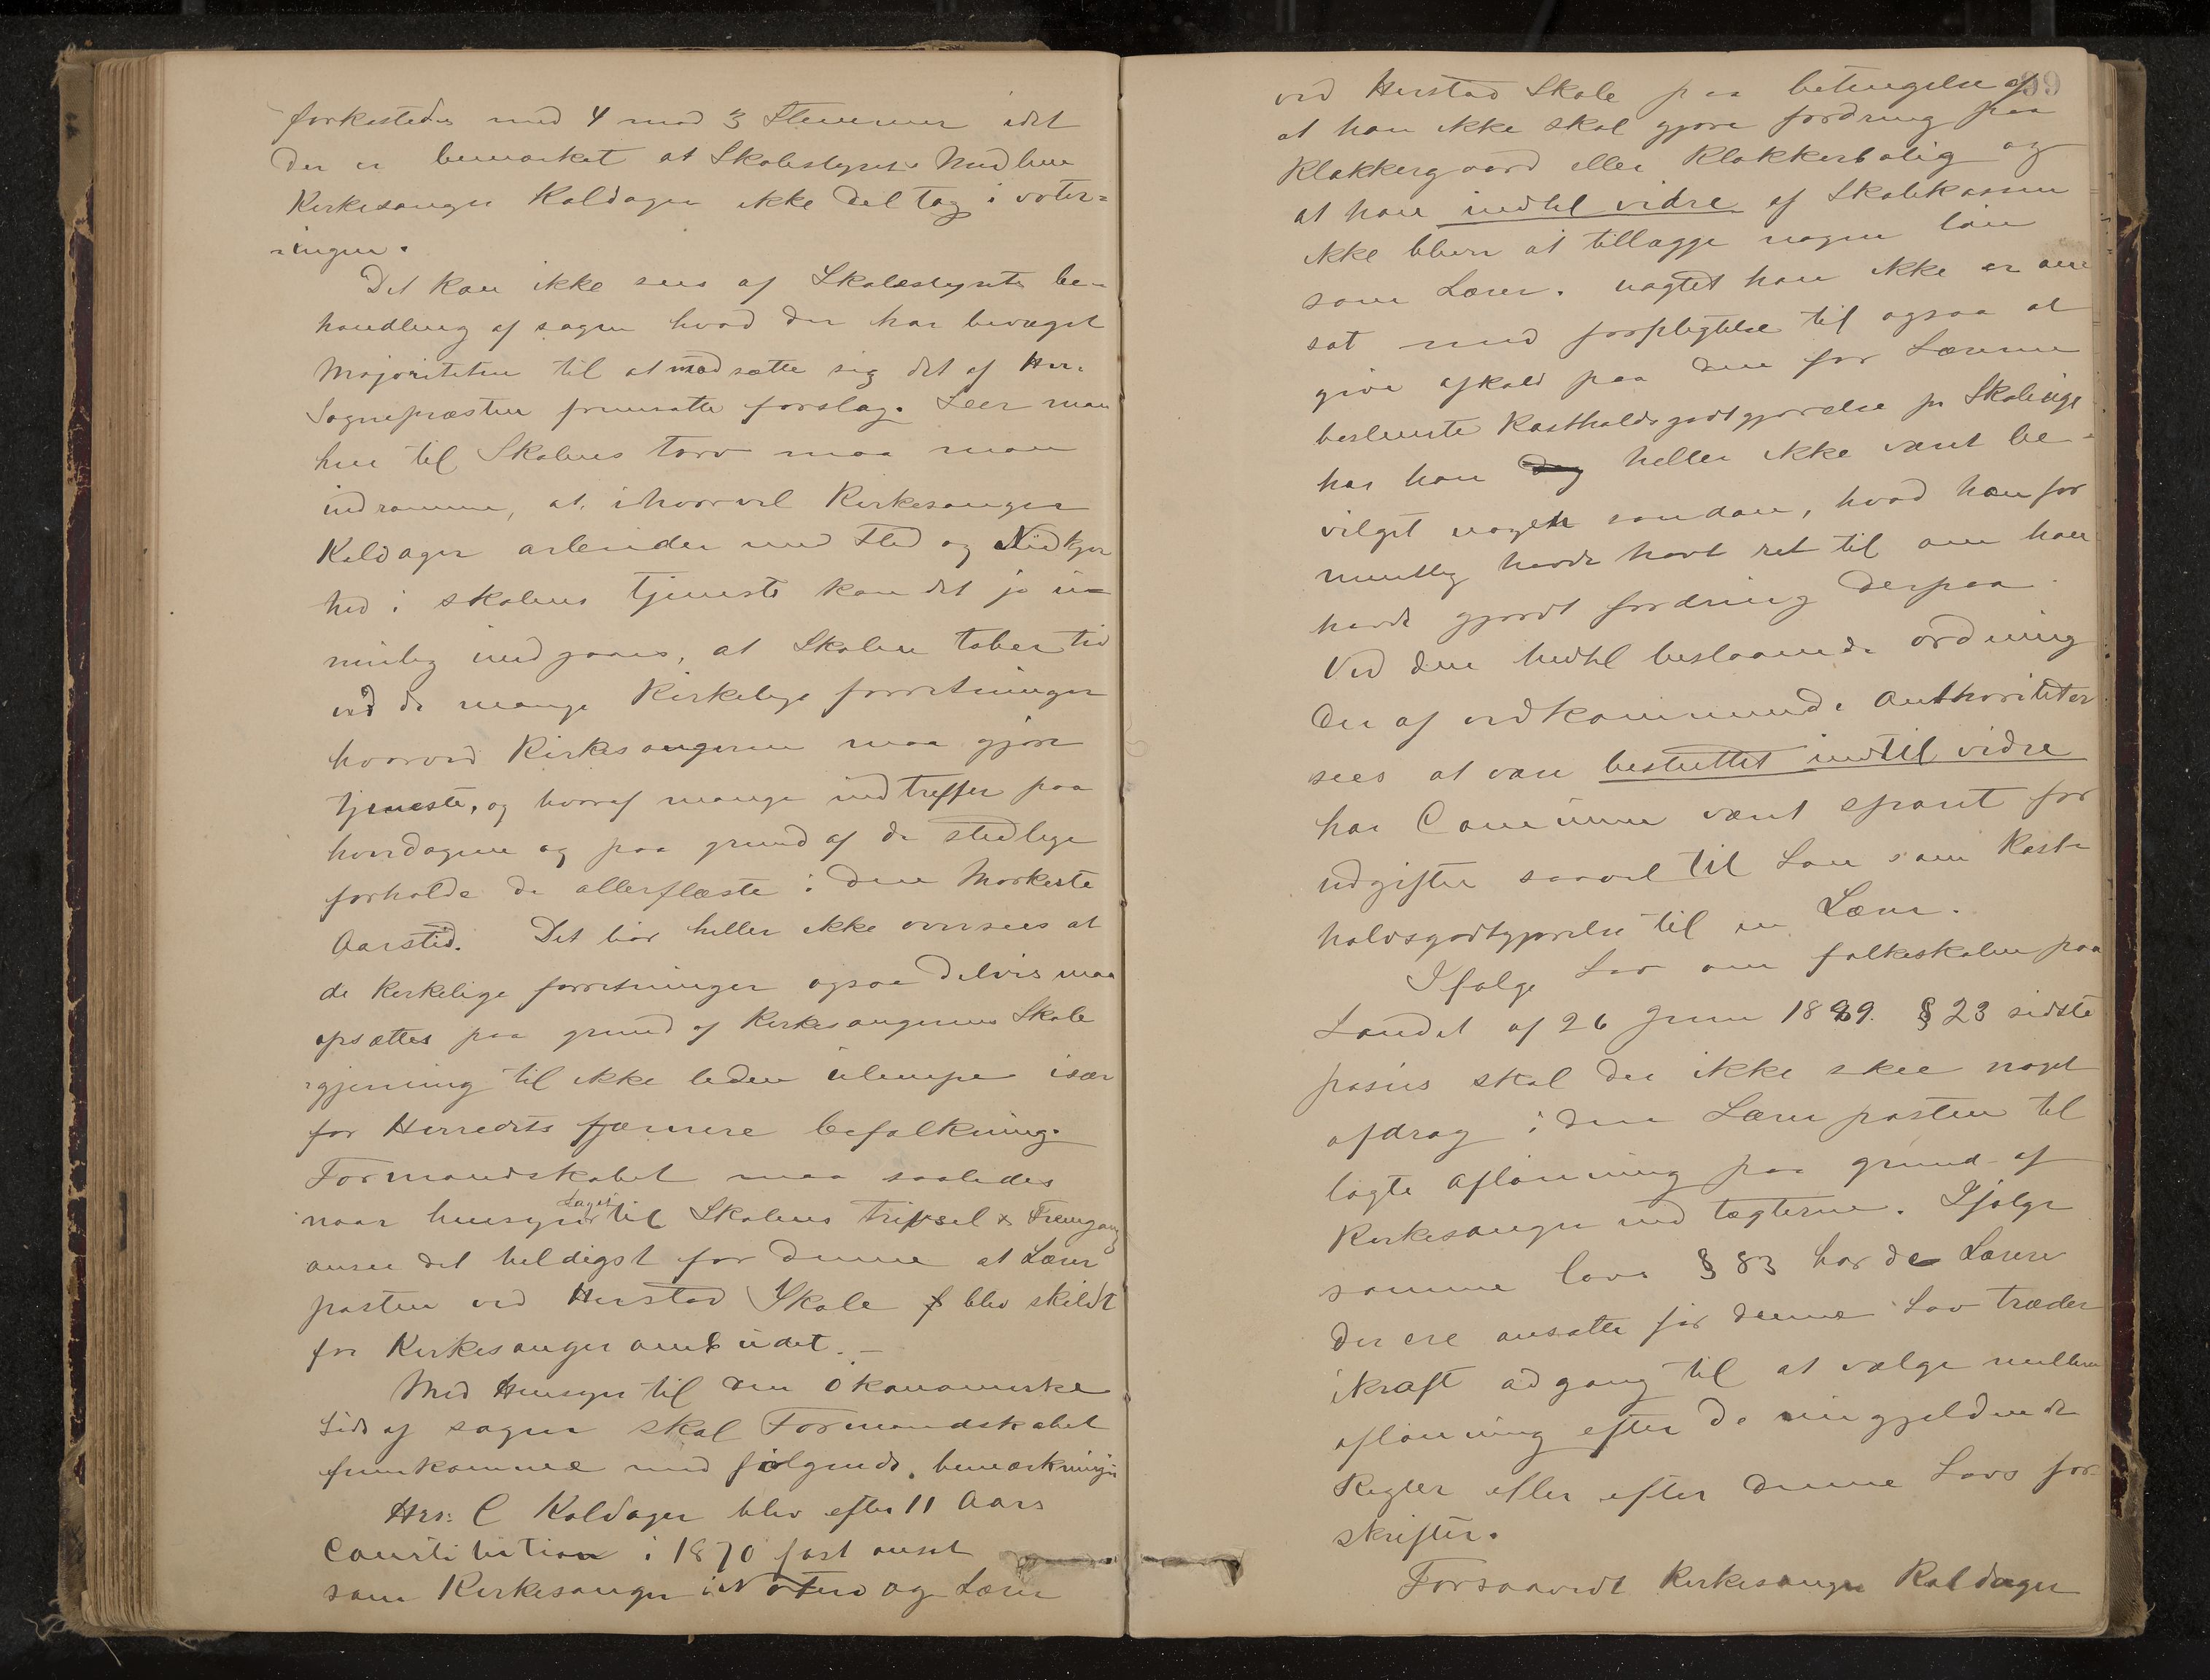 forkastedes med 4 mod 3 Stemmer idet
der er bemærket at Skolestyrets Medlem
Kirkesanger Koldager ikke deltog i voter=
ingen.
Det kan ikke sees af Skolestyrets be-
handling af sagen hvad der har bevæget
Majoriteten til at modsætte sig det af Hr.
Sognepræsten fremsatte forslag. Seer man
hen til Skolens tarv maa man
indrømme, at ihvorvel Kirkesanger
Koldager arbeider med Flid og Nidkjær
hed i skolens tjeneste kan det jo u-
mulig undgaaes, at Skolen taber tid
ved de mange Kirkelige forretninger
hvorved Kirkesangeren maa gjøre
tjeneste, og hvoraf mange indtreffer paa
hverdagene og paa grund af de stedlige
forholde de allerfleste i den Mørkeste
Aarstid. Det bør heller ikke oversees at
de Kirkelige forretninger ogsaa delvis maa
opsættes paa grund af Kirkesangerens Skole
gjerning til ikke liden ulempe især
for Herredets fjærnere befolkning.
Formandskabet maa saaledes
naar hensyn tages til Skolens Trivsel & Fremgang
ansee det heldigst for denne at Lærer
posten ved Herstad Skole blev skildt
fra Kirkesanger ombudet. -
Med Hensyn til den økonomiske
Side af sagen skal Formandskabet
fremkomme med følgende bemærkninger
Hr: C Koldager blev efter 11 Aars
Constitution i 1870 fast ansat
som Kirkesanger i og Lærer
99
ved Herstad Skole paa betingelse af
at han ikke skal gjøre fordring paa
Klokkergaard eller Klokkerbolig og
at han indtil vidre af Skolekassen
ikke bliver at tillægge nogen løn
som Lærer. uagtet han ikke er an
sat med forpligtelse til ogsaa at
give afkald paa den for Lærerne
bestemte Kostholdsgodtgjørelse pr Skoleuge
har han dog heller ikke været be-
vilget nogen saadan, hvad han for
mentlig havde havt ret til om han
havde gjordt fordring derpaa.
Ved den hidtil bestaaende ordning
der af vedkommende Authoriteter
sees at være besluttet indtil vidre
har Communen været sparet for
udgifter saavel til Løn som Kost-
holdsgodtgjørelse til en Lærer.
Ifølge Lov om folkeskolen paa
Landet af 26 Juni 1889. § 23 sidste
passus skal der ikke skee noget
afdrag i den Lærerposten til
lagte aflønning paa grund af
Kirkesanger indtægterne. Ifølge
samme lovs § 83 har de Lærere
der ere ansatte før denne Lov træder
ikraft adgang til at vælge mellem
aflønning efter de nu gjeldende
Regler eller efter denne Lovs for-
skrifter.
Forsaavidt Kirkesanger Koldager